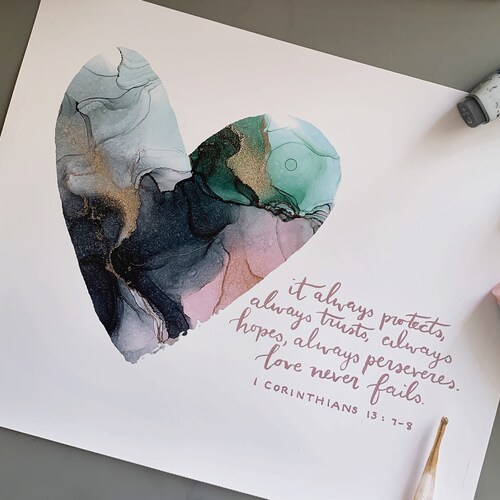 it always protects,
always trusts, always
hopes, always perseveres.
love never fails.
1 CORINTHIANS 13:7-8